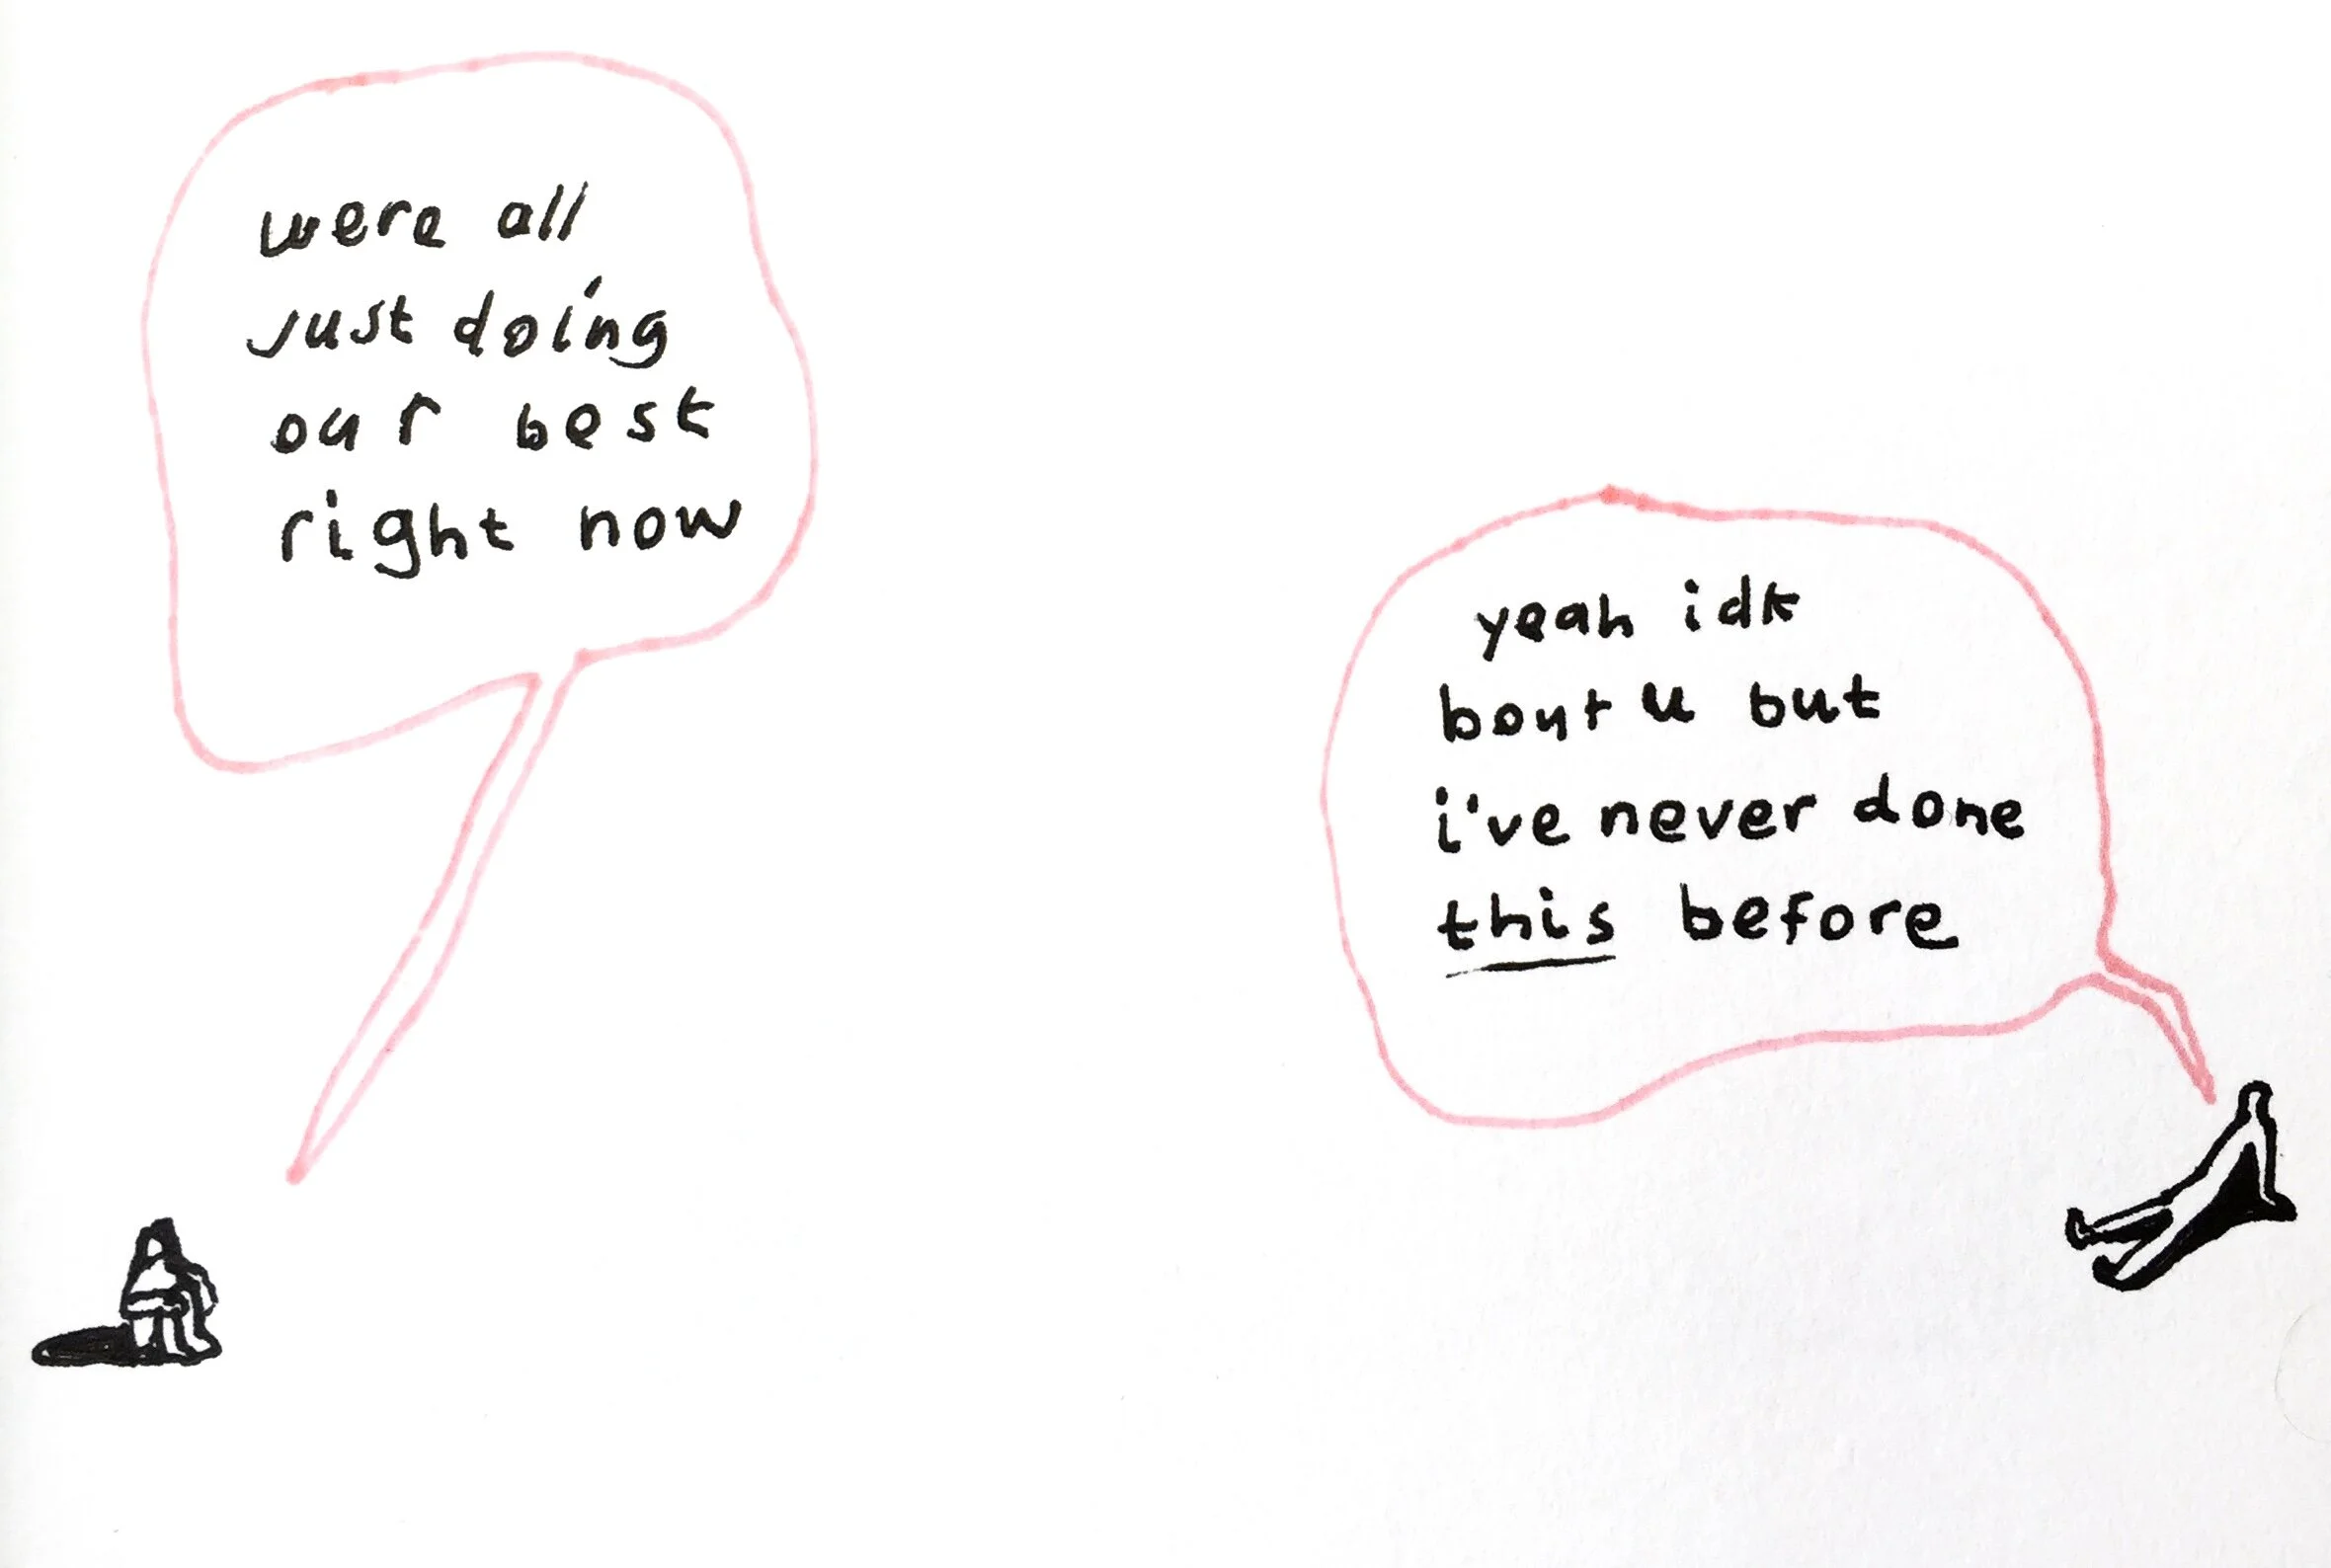 were all
just doing
our best
right now
yeah idk
bout u but
i've never done
this before